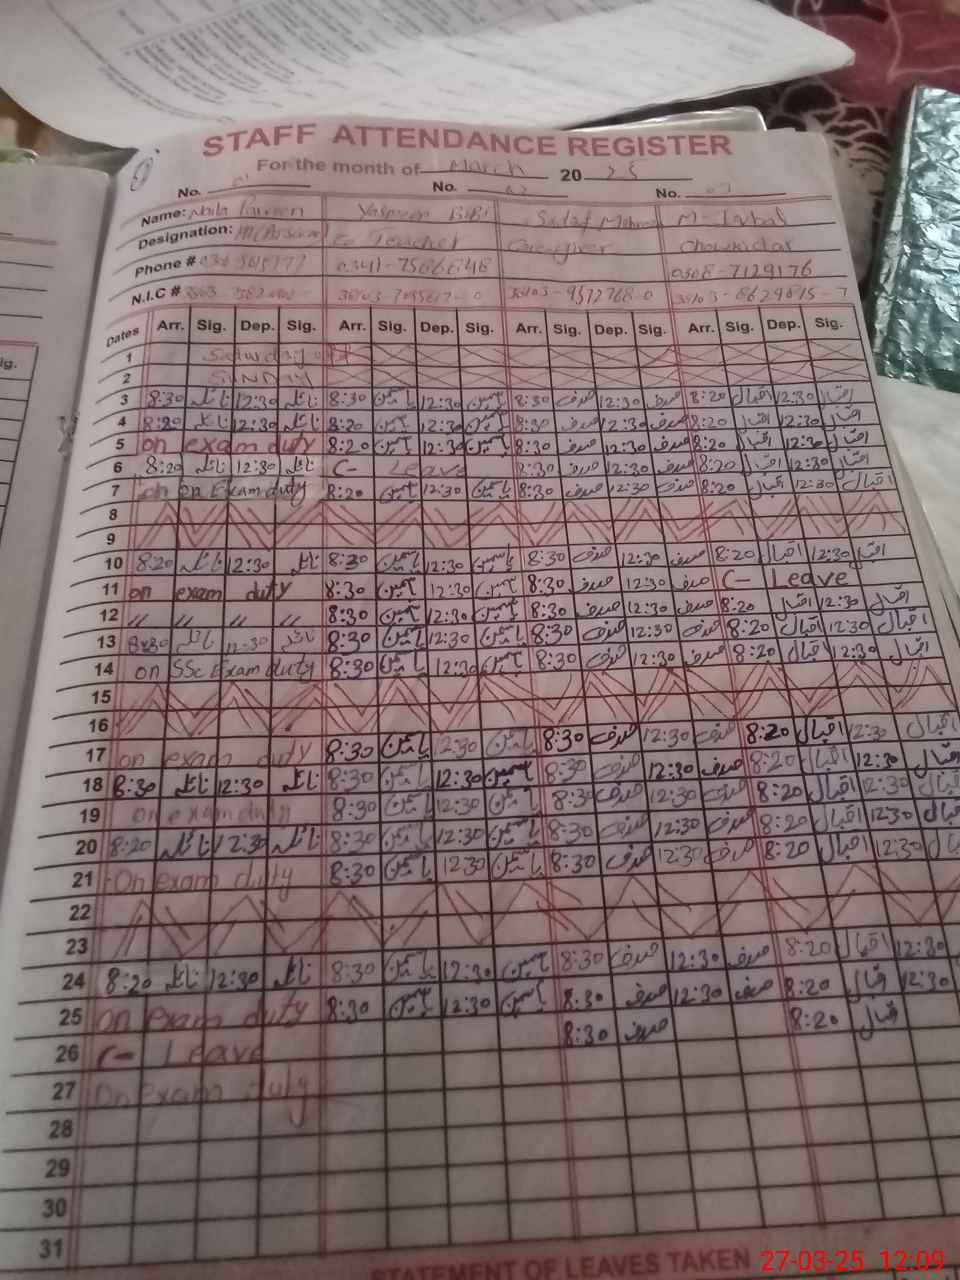 STAFF ATTENDANCE REGISTER
For the month of March 20 25
No. 01 No. 02 No. 03
Name: Nbila Parveen Yasmeen BiBi Sadaf M-Iqbal
Designation: Teacher Caregiver Chowkidar
Phone # 0341-7566646 0308-7129176
N.I.C #
Dates Arr. Sig. Dep. Sig. Arr. Sig. Dep. Sig. Arr. Sig. Dep. Sig. Arr. Sig. Dep. Sig.
1 Saturday off
2 SUNDAY
3 8:30 نائلہ 12:30 نائلہ 8:30 یاسمین 12:30 یاسمین 8:30 صدف 12:30 صدف 8:20 اقبال 12:30 اقبال
4 8:20 نائلہ 12:30 نائلہ 8:20 یاسمین 12:30 یاسمین 8:30 صدف 12:30 صدف 8:20 اقبال 12:30 اقبال
5 on exam duty 8:20 یاسمین 12:30 یاسمین 8:30 صدف 12:30 صدف 8:20 اقبال 12:30 اقبال
6 8:20 نائلہ 12:30 نائلہ C- Leave 8:30 صدف 12:30 صدف 8:20 اقبال 12:30 اقبال
7 on Exam duty 8:20 یاسمین 12:30 یاسمین 8:30 صدف 12:30 صدف 8:20 اقبال 12:30 اقبال
8
9
10 8:20 نائلہ 12:30 نائلہ 8:30 یاسمین 12:30 یاسمین 8:30 صدف 12:30 صدف 8:20 اقبال 12:30 اقبال
11 on exam duty 8:30 یاسمین 12:30 یاسمین 8:30 صدف 12:30 صدف C- Leave
12 // // // // 8:30 یاسمین 12:30 یاسمین 8:30 صدف 12:30 صدف 8:20 اقبال 12:30 اقبال
13 8:30 نائلہ 12:30 نائلہ 8:30 یاسمین 12:30 یاسمین 8:30 صدف 12:30 صدف 8:20 اقبال 12:30 اقبال
14 on SSc Exam duty 8:30 یاسمین 12:30 یاسمین 8:30 صدف 12:30 صدف 8:20 اقبال 12:30 اقبال
15
16
17 on exam duty 8:30 یاسمین 12:30 یاسمین 8:30 صدف 12:30 صدف 8:20 اقبال 12:30 اقبال
18 8:30 نائلہ 12:30 نائلہ 8:30 یاسمین 12:30 یاسمین 8:30 صدف 12:30 صدف 8:20 اقبال 12:30 اقبال
19 on exam duty 8:30 یاسمین 12:30 یاسمین 8:30 صدف 12:30 صدف 8:20 اقبال 12:30 اقبال
20 8:20 نائلہ 12:30 نائلہ 8:30 یاسمین 12:30 یاسمین 8:30 صدف 12:30 صدف 8:20 اقبال 12:30
21 On exam duty 8:30 یاسمین 12:30 یاسمین 8:30 صدف 12:30 صدف 8:20 اقبال 12:30
22
23
24 8:20 نائلہ 12:30 نائلہ 8:30 یاسمین 12:30 یاسمین 8:30 صدف 12:30 صدف 8:20 اقبال 12:30
25 on exam duty 8:30 یاسمین 12:30 یاسمین 8:30 صدف 12:30 صدف 8:20 اقبال 12:30
26 C- Leave 8:30 صدف 8:20 اقبال
27 On Exam duty
28
29
30
31
STATEMENT OF LEAVES TAKEN
27-03-25 12:09